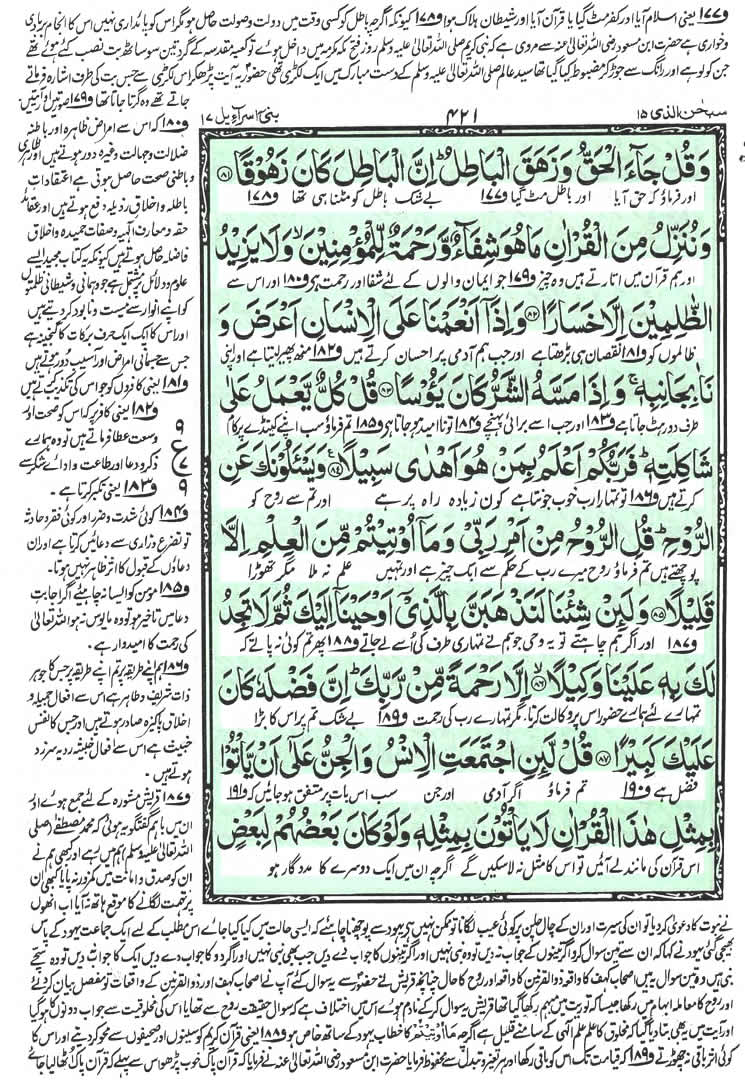 و۱۷۷ یعنی اسلام آیا اور کفر مٹ گیا یا قرآن آیا اور شیطان ہلاک ہوا و۱۷۸ کیونکہ اگرچہ باطل کو کسی وقت میں دولت و صولت حاصل ہو مگر اس کو پائداری نہیں اس کا انجام بربادی
و خواری ہے حضرت ابن مسعود رضی اللہ تعالیٰ عنہ سے مروی ہے کہ نبی کریم صلی اللہ تعالیٰ علیہ وسلم روز فتح مکہ مکرمہ میں داخل ہوئے تو کعبہ مقدسہ کے گرد تین سو ساٹھ بت نصب کئے ہوئے تھے
جن کو لوہے اور رانگ سے جوڑ کر مضبوط کیا گیا تھا سید عالم صلی اللہ تعالیٰ علیہ وسلم کے دست مبارک میں ایک لکڑی تھی حضور یہ آیت پڑھ کر اس لکڑی سے جس بت کی طرف اشارہ فرماتے
جاتے تھے وہ گرتا جاتا تھا و۱۷۹ سورتیں اور آیتیں
و۱۸۰ کہ اس سے امراض ظاہرہ اور باطنہ
ضلالت و جہالت وغیرہ دور ہوتے ہیں اور ظاہری
و باطنی صحت حاصل ہوتی ہے اعتقادات
باطلہ و اخلاق رذیلہ دفع ہوتے ہیں اور عقائد
حقہ و معارف الٰہیہ و صفات حمیدہ و اخلاق
فاضلہ حاصل ہوتے ہیں کیونکہ یہ کتاب مجید ایسے
علوم و دلائل پر مشتمل ہے جو وہمانی و شیطانی ظلمتوں
کو اپنے انوار سے نیست و نابود کر دیتے ہیں
اور اس کا ایک ایک حرف برکات کا گنجینہ ہے
جس سے جسمانی امراض اور آسیب دور ہوتے ہیں
و۱۸۱ یعنی کافروں کو جو اس کی تکذیب کرتے ہیں
و۱۸۲ یعنی کافر پر کہ اس کو صحت اور
وسعت عطا فرماتے ہیں تو وہ ہمارے
ذکر و دعا اور طاعت و ادائے شکر سے
و۱۸۳ یعنی تکبر کرتا ہے۔
و۱۸۴ کوئی شدت و ضرر اور کوئی فقر و حادثہ
تو تضرع و زاری سے دعائیں کرتا ہے اور ان
دعاؤں کے قبول کا اثر ظاہر نہیں ہوتا۔
و۱۸۵ مومن کو ایسا نہ چاہیئے اگر اجابت
دعا میں تاخیر ہو تو وہ مایوس نہ ہو اللہ تعالیٰ
کی رحمت کا امیدوار رہے۔
و۱۸۶ ہم اپنے طریقہ پر تم اپنے طریقہ پر جس کا جوہر
ذات شریف و طاہر ہے اس سے افعال جمیلہ و
اخلاق پاکیزہ صادر ہوتے ہیں اور جس کا نفس
خبیث ہے اس سے افعال خبیثہ ردیہ سرزد
ہوتے ہیں۔
و۱۸۷ قریش مشورہ کے لئے جمع ہوئے اور
ان میں باہم گفتگو یہ ہوئی کہ محمد مصطفٰے (صلی
اللہ تعالیٰ علیہ وسلم) ہم میں رہے اور کبھی ہم نے
ان کو صدق و امانت میں کمزور نہ پایا کبھی ان
پر تہمت لگانے کا موقع ہاتھ نہ آیا اب انھوں
ع
۹
۷
۹
سبحٰن الذی ۱۵
۴۲۱
بنی اسرآءیل ۱۷
وَقُلْ جَآءَ الْحَقُّ وَزَهَقَ الْبَاطِلُ ؕ اِنَّ الْبَاطِلَ كَانَ زَهُوْقًا ۸۱
اور فرماؤ کہ حق آیا اور باطل مٹ گیا و۱۷۷ بے شک باطل کو مٹنا ہی تھا و۱۷۸
وَنُنَزِّلُ مِنَ الْقُرْاٰنِ مَا هُوَ شِفَآءٌ وَّرَحْمَةٌ لِّلْمُؤْمِنِيْنَ ۙ وَلَا يَزِيْدُ
اور ہم قرآن میں اتارتے ہیں وہ چیز و۱۷۹ جو ایمان والوں کے لئے شفا اور رحمت ہے و۱۸۰ اور اس سے
الظّٰلِمِيْنَ اِلَّا خَسَارًا ۸۲ وَاِذَاۤ اَنْعَمْنَا عَلَى الْاِنْسَانِ اَعْرَضَ وَ
ظالموں کو و۱۸۱ نقصان ہی بڑھتا ہے اور جب ہم آدمی پر احسان کرتے ہیں و۱۸۲ منھ پھیر لیتا ہے اور اپنی
نَاٰ بِجَانِبِهٖ ۚ وَاِذَا مَسَّهُ الشَّرُّ كَانَ يَـُٔوْسًا ۸۳ قُلْ كُلٌّ يَّعْمَلُ عَلٰى
طرف دور ہٹ جاتا ہے و۱۸۳ اور جب اسے برائی پہنچے و۱۸۴ تو ناامید ہو جاتا ہے و۱۸۵ تم فرماؤ سب اپنے کینڈے پر کام
شَاكِلَتِهٖ ؕ فَرَبُّكُمْ اَعْلَمُ بِمَنْ هُوَ اَهْدٰى سَبِيْلًا ۸۴ وَيَسْـَٔلُوْنَكَ عَنِ
کرتے ہیں و۱۸۶ تو تمہارا رب خوب جانتا ہے کون زیادہ راہ پر ہے اور تم سے روح کو
الرُّوْحِ ؕ قُلِ الرُّوْحُ مِنْ اَمْرِ رَبِّيْ وَمَاۤ اُوْتِيْتُمْ مِّنَ الْعِلْمِ اِلَّا
پوچھتے ہیں تم فرماؤ روح میرے رب کے حکم سے ایک چیز ہے اور تمہیں علم نہ ملا مگر تھوڑا
قَلِيْلًا ۸۵ وَلَئِنْ شِئْنَا لَنَذْهَبَنَّ بِالَّذِيْۤ اَوْحَيْنَاۤ اِلَيْكَ ثُمَّ لَا تَجِدُ
و۱۸۷ اور اگر ہم چاہتے تو یہ وحی جو ہم نے تمہاری طرف کی اسے لے جاتے و۱۸۸ پھر تم کوئی نہ پاتے کہ
لَكَ بِهٖ عَلَيْنَا وَكِيْلًا ۸۶ اِلَّا رَحْمَةً مِّنْ رَّبِّكَ ؕ اِنَّ فَضْلَهٗ كَانَ
تمہارے لئے ہمارے حضور اس پر وکالت کرتا۔ مگر تمہارے رب کی رحمت و۱۸۹ بے شک تم پر اس کا بڑا
عَلَيْكَ كَبِيْرًا ۸۷ قُلْ لَّئِنِ اجْتَمَعَتِ الْاِنْسُ وَالْجِنُّ عَلٰۤى اَنْ يَّاْتُوْا
فضل ہے و۱۹۰ تم فرماؤ اگر آدمی اور جن سب اس بات پر متفق ہو جائیں کہ و۱۹۱
بِمِثْلِ هٰذَا الْقُرْاٰنِ لَا يَاْتُوْنَ بِمِثْلِهٖ وَلَوْ كَانَ بَعْضُهُمْ لِبَعْضٍ
اس قرآن کی مانند لے آئیں تو اس کا مثل نہ لا سکیں گے اگرچہ ان میں ایک دوسرے کا مددگار ہو
نے نبوت کا دعویٰ کر دیا تو ان کی سیرت اور ان کے چال چلن پر کوئی عیب لگانا تو ممکن نہیں ہے یہود سے پوچھنا چاہئے کہ ایسی حالت میں کیا کیا جائے اس مطلب کے لئے ایک جماعت یہود کے پاس
بھیجی گئی یہود نے کہا کہ ان سے تین سوال کرو اگر تینوں کے جواب نہ دیں تو وہ نبی نہیں اور اگر تینوں کا جواب دے دیں جب بھی نبی نہیں اور اگر دو کا جواب دے دیں ایک کا جواب نہ دیں تو وہ سچے
نبی ہیں وہ تین سوال یہ ہیں اصحاب کہف کا واقعہ ذوالقرنین کا واقعہ اور روح کا حال چنانچہ قریش نے حضور سے یہ سوال کئے آپ نے اصحاب کہف اور ذوالقرنین کے واقعات تو مفصل بیان کر دیئے
اور روح کا معاملہ ابہام میں رکھا جیسا کہ توریت میں مبہم رکھا گیا تھا قریش یہ سوال کر کے نادم ہوئے اس میں اختلاف ہے کہ سوال حقیقت روح سے تھا یا اس کی مخلوقیت سے جواب دونوں کا ہو گیا
اور آیت میں یہ بھی بتا دیا گیا کہ مخلوق کا علم علم الٰہی کے سامنے قلیل ہے اگرچہ مَاۤ اُوْتِيْتُمْ کا خطاب یہود کے ساتھ خاص ہو و۱۸۸ یعنی قرآن کریم کو سینوں اور صحیفوں سے محو کر دیتے اور اس کا
کوئی اثر باقی نہ چھوڑتے و۱۸۹ کہ قیامت تک اس کو باقی رکھا اور ہر تغیر و تبدل سے محفوظ فرمایا حضرت ابن مسعود رضی اللہ تعالیٰ عنہ نے فرمایا کہ قرآن پاک خوب پڑھو اس سے پہلے کہ قرآن پاک اٹھا لیا جائے